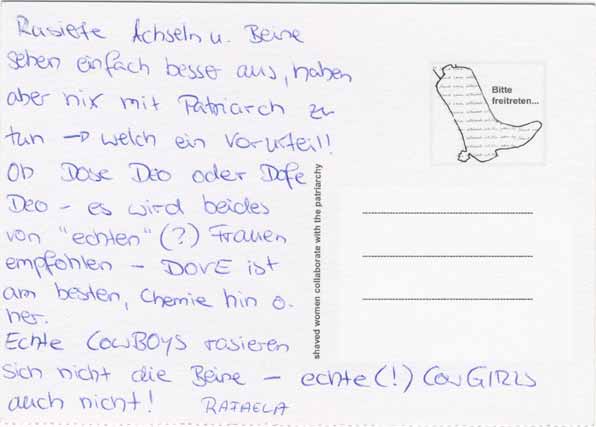 Rasierte Achseln u. Beine
sehen einfach besser aus, haben
aber nix mit Patriarch zu
tun → welch ein Vorurteil!!
Ob Dose Deo oder Dofe
Deo - es wird beides
von "echten" (?) Frauen
empfohlen - DOVE ist
am besten, Chemie hin o.
her.
Echte COWBOYS rasieren
sich nicht die Beine - echte (!) COWGIRLS
auch nicht! RAFAELA
Bitte
freitreten...
shaved women collaborate with the patriarchy